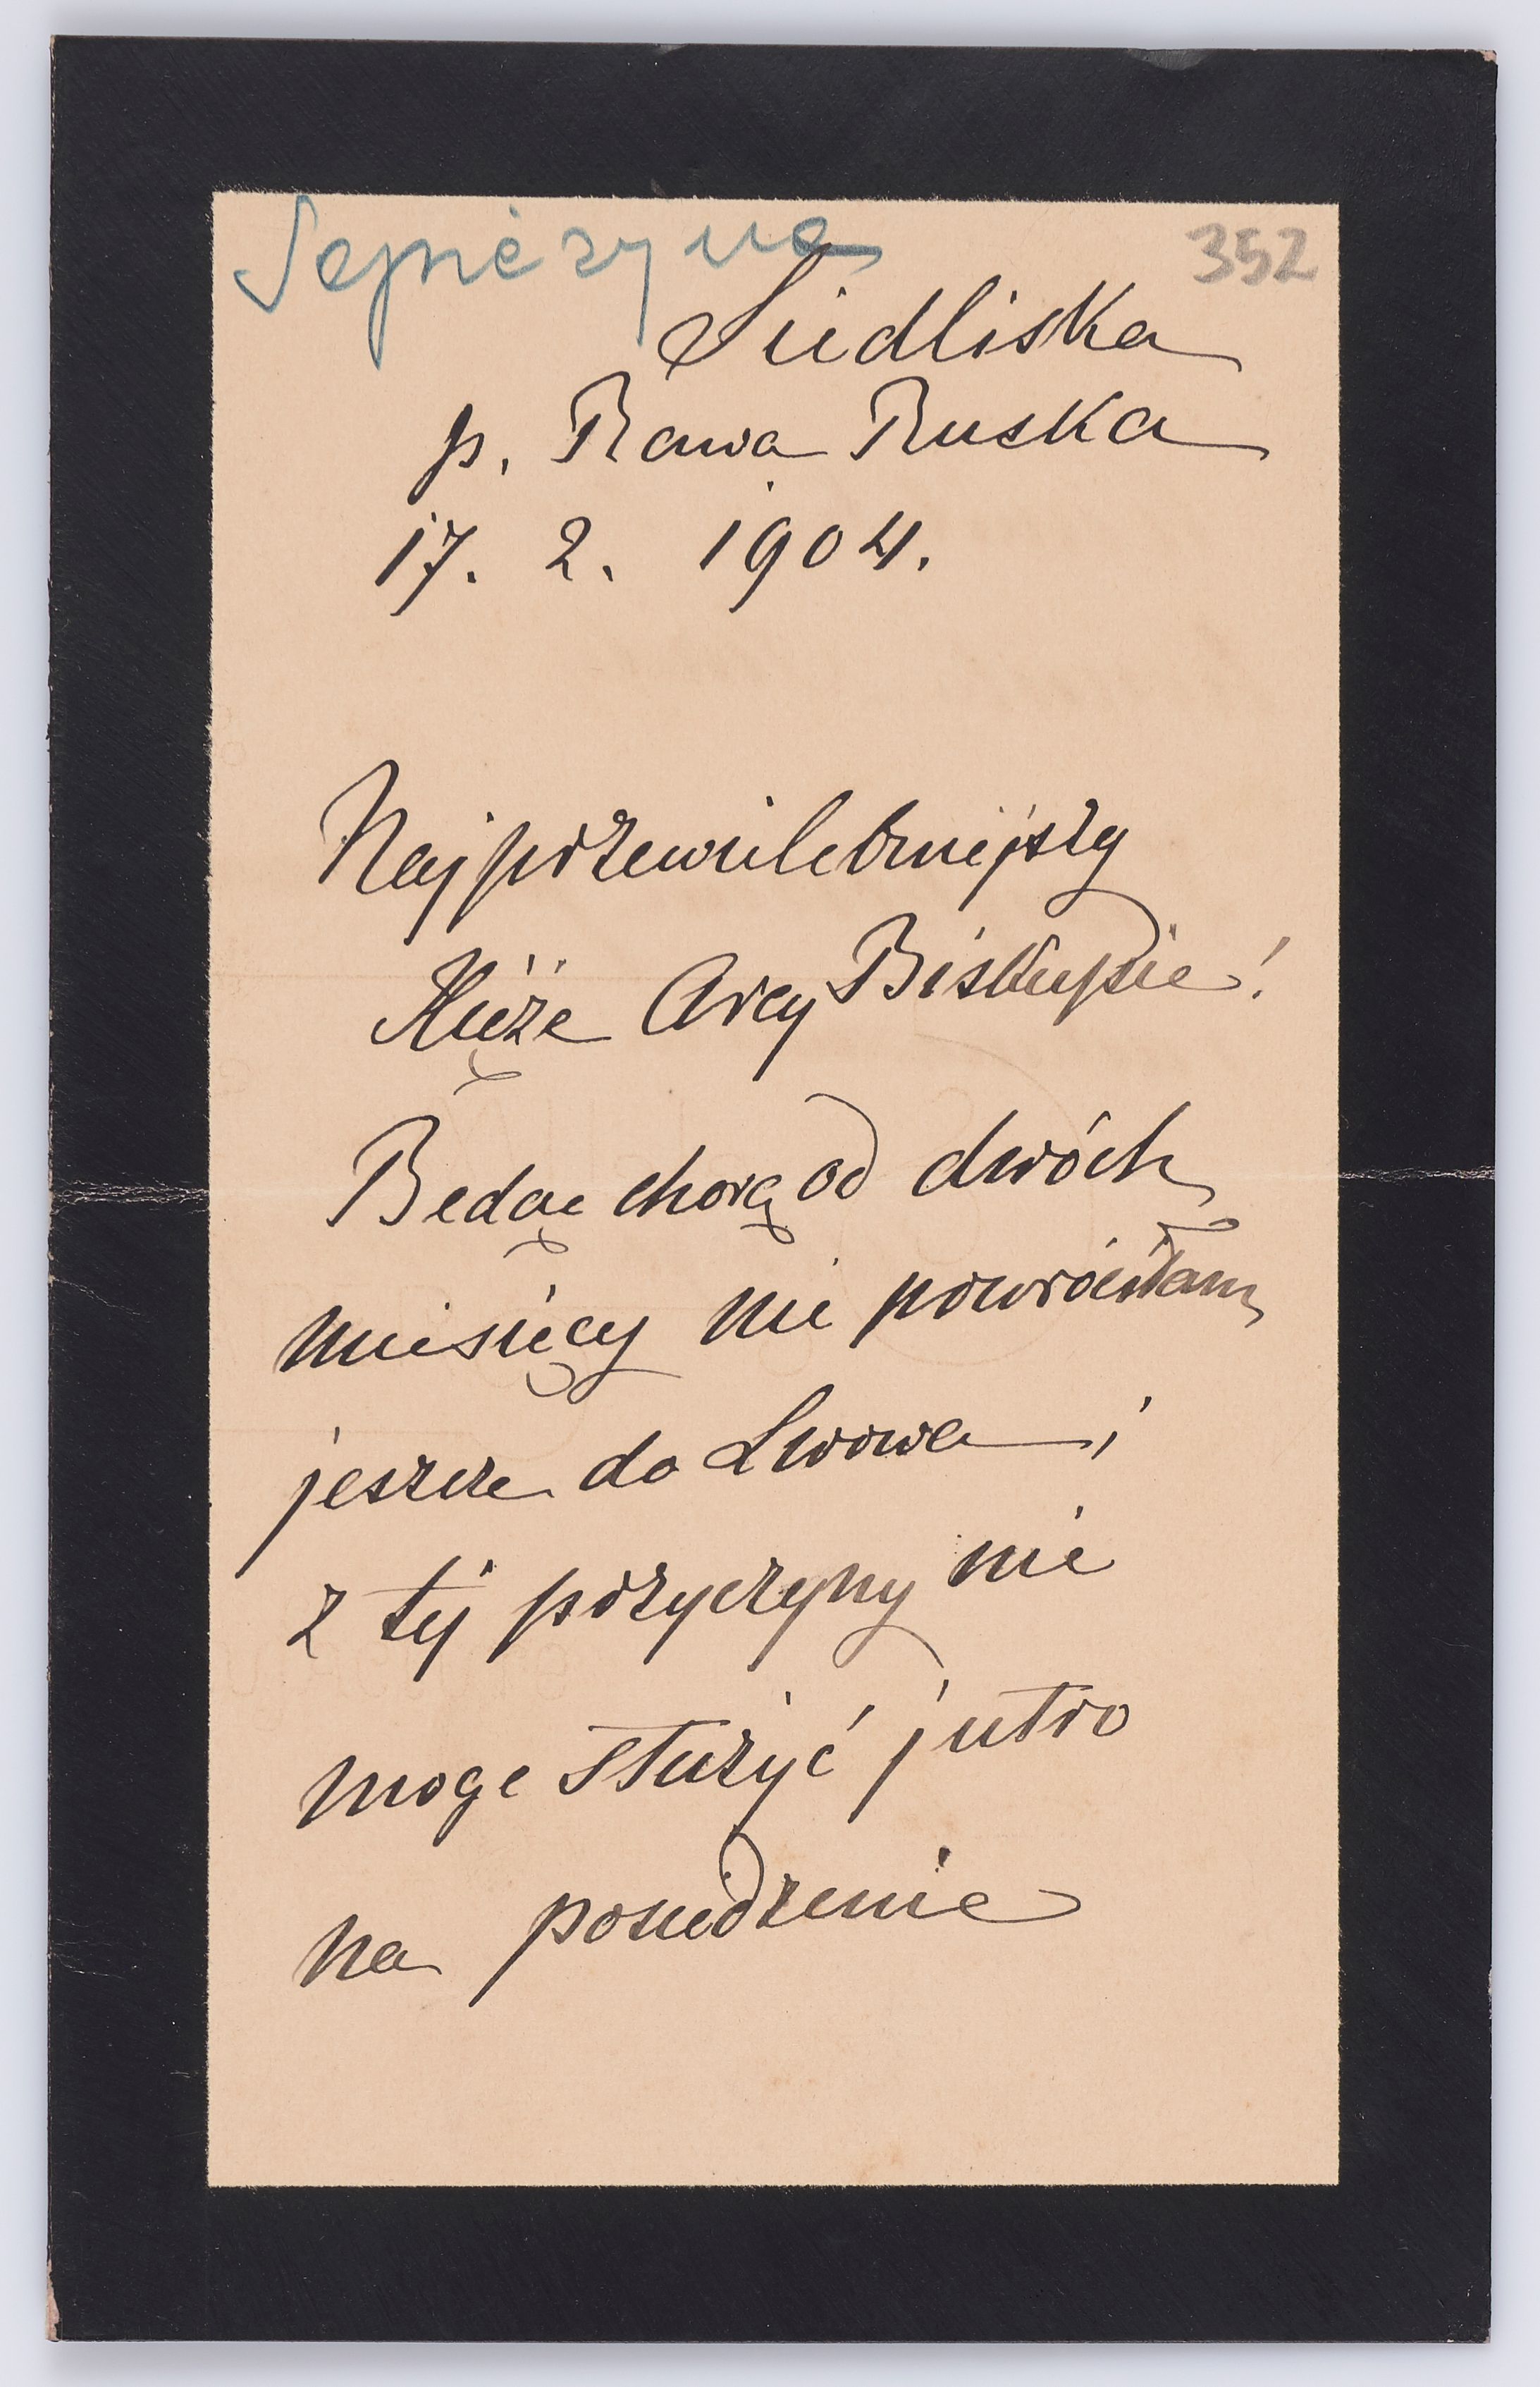 Sapieżyna
352
Siedliska
p. Rawa Ruska
17. 2. 1904.
Najprzewielebniejszy
Księże Arcy Biskupie!
Będąc chorą od dwóch
miesięcy nie powróciłam
jeszcze do Lwowa i
z tej przyczyny nie
moge służyć jutro
na posiedzenie